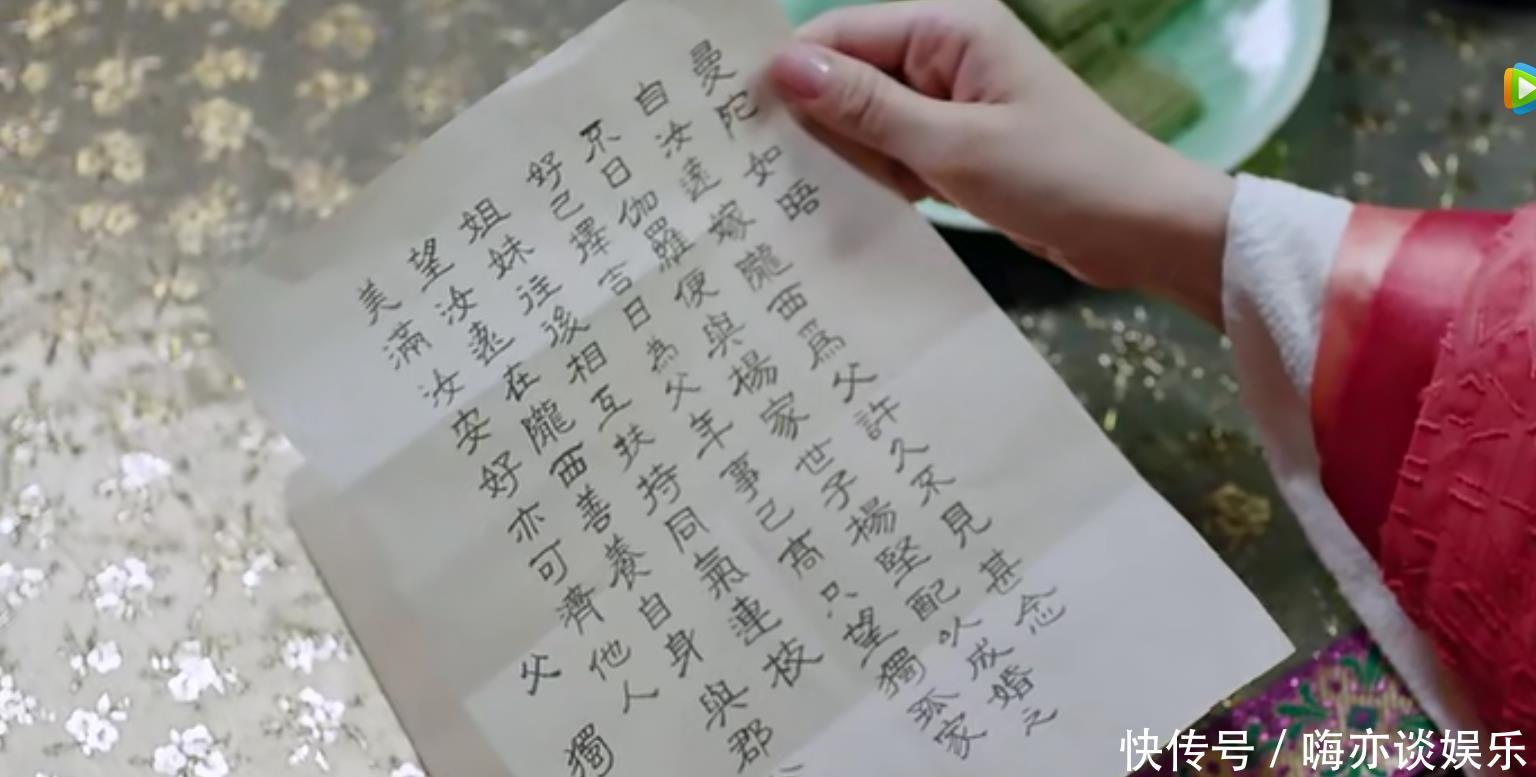 曼陀如晤
自汝遠嫁隴西爲父許久不見甚念
不日伽羅便與楊家世子楊堅配以成婚之
好己擇言日為父年事己高只望獨孤家
姐妹往後相互扶持同氣連枝
望汝遠在隴西善養自身與郡
美滿汝安好亦可濟他人
父獨
快传号/嗨亦谈娱乐